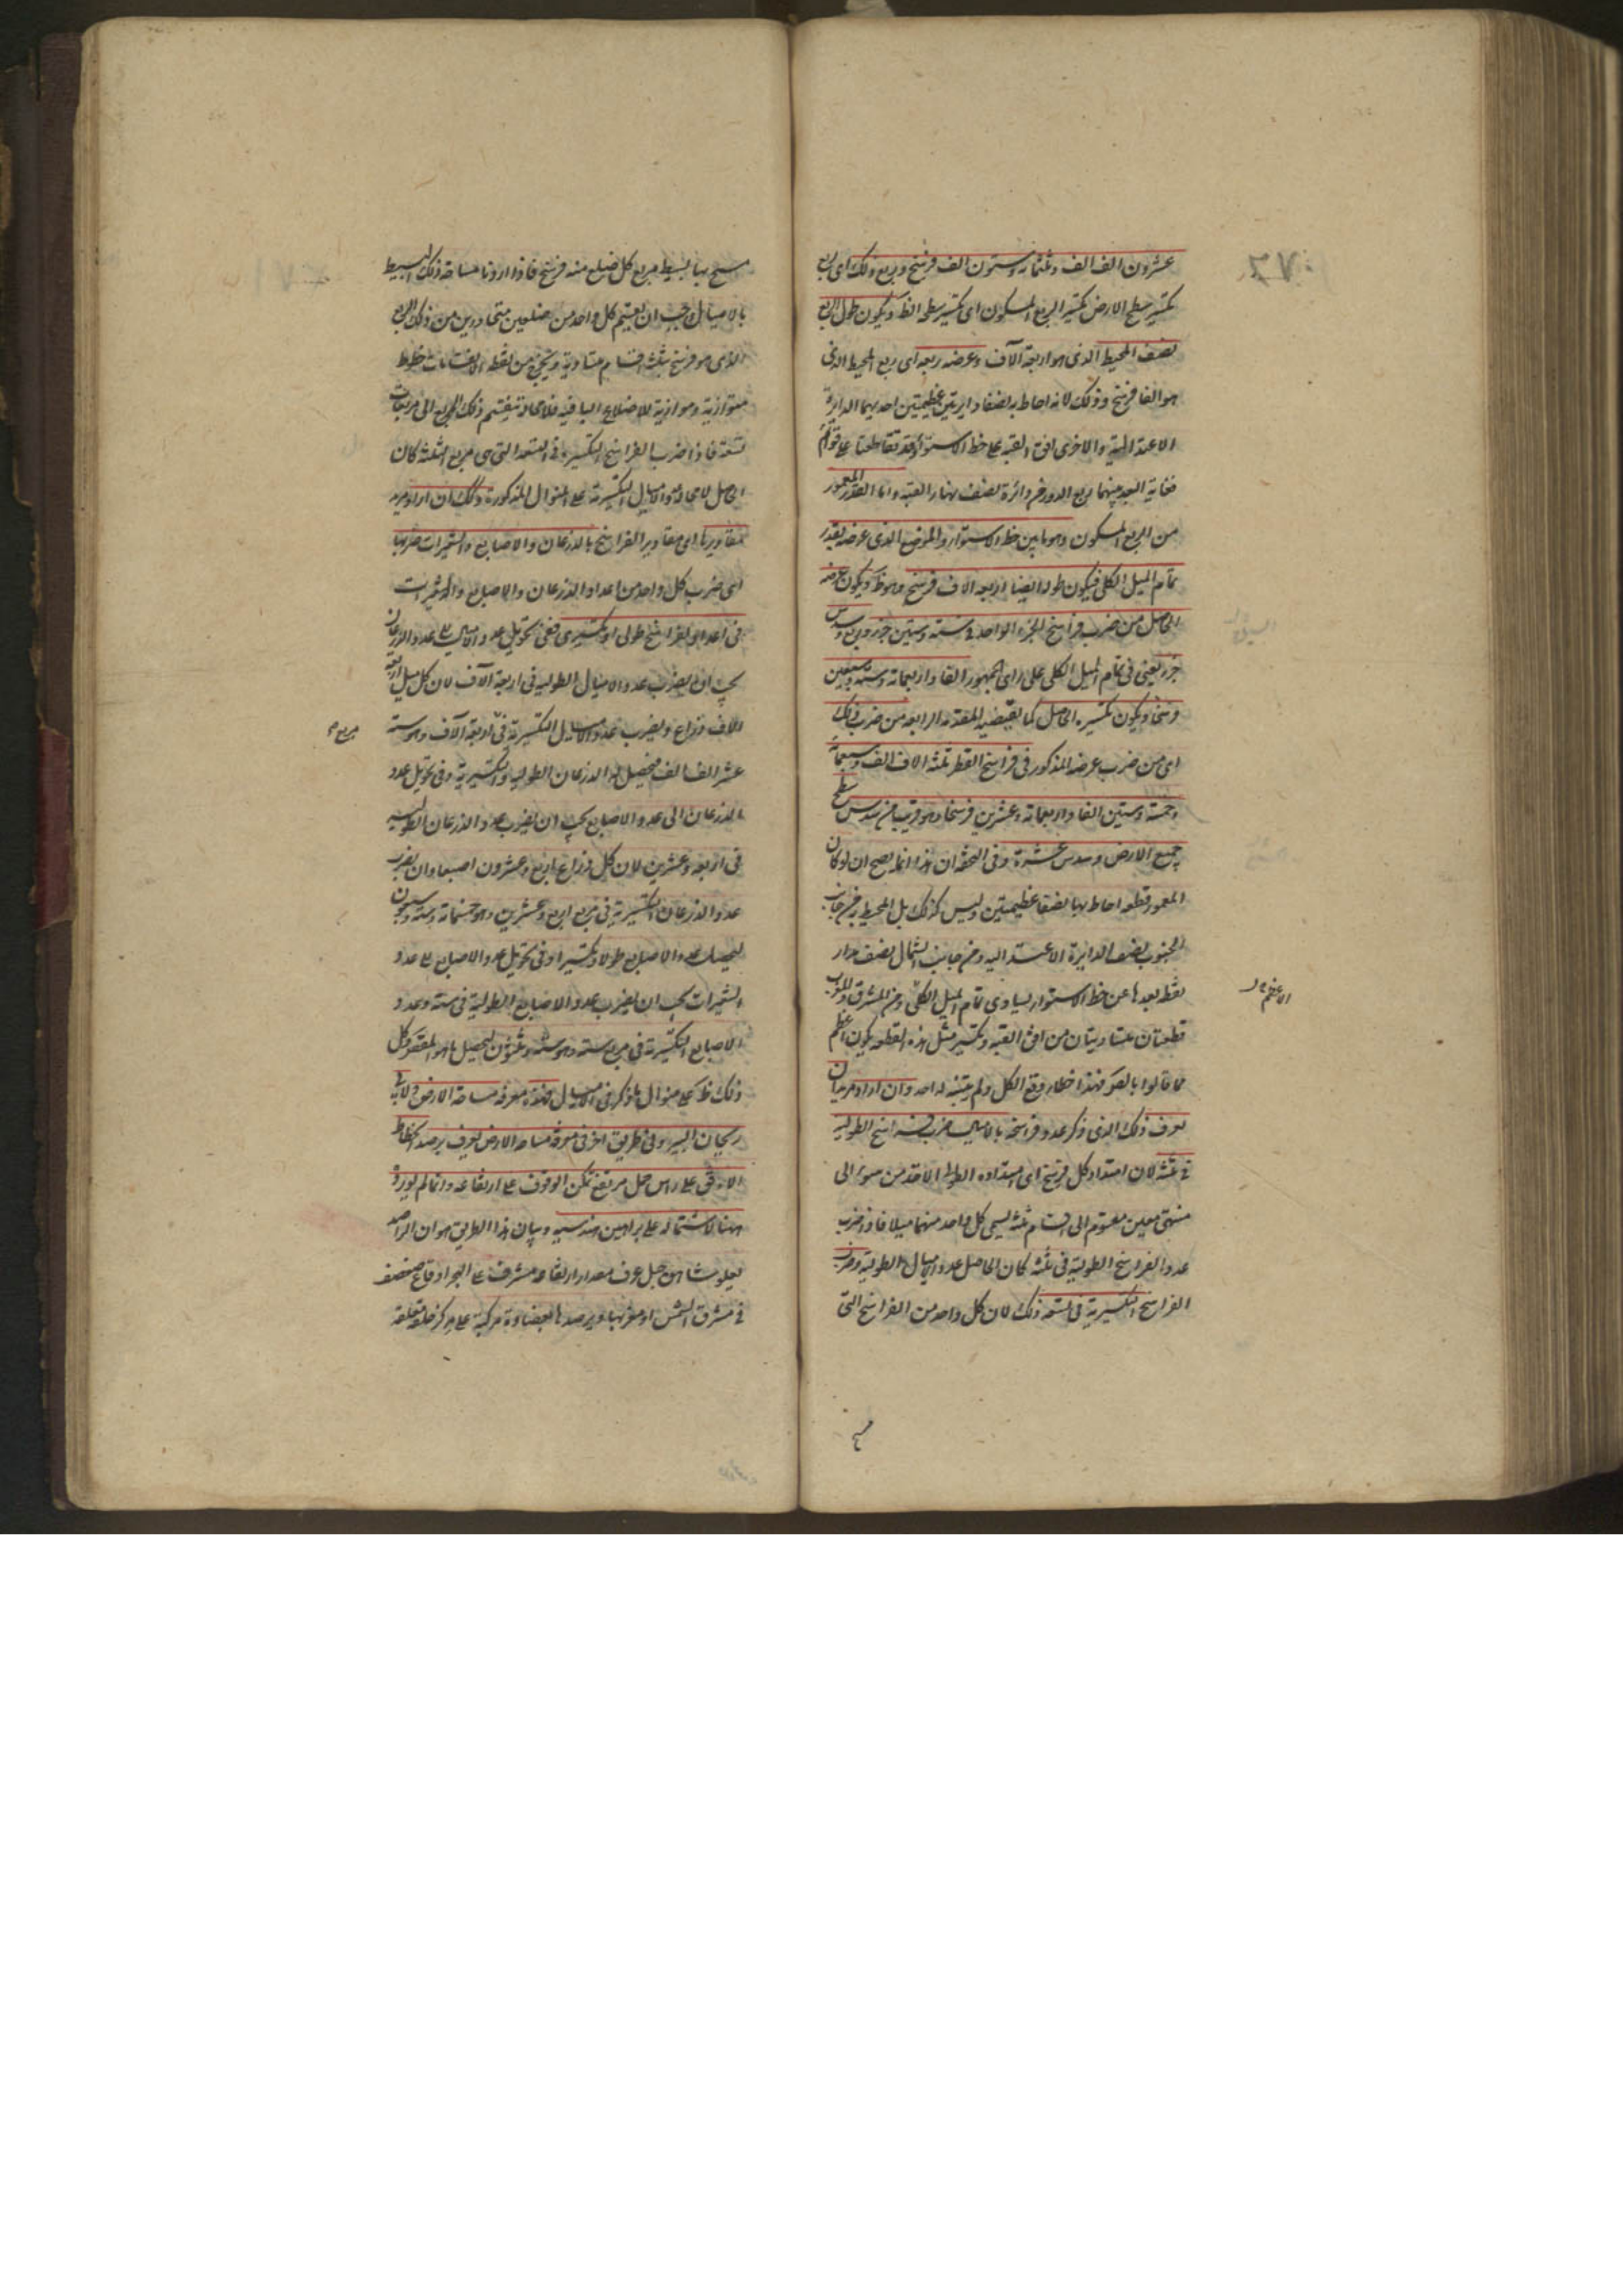 عشرون الف الف وثلثمائة وستون الف فرسخ وربع ذلك اى ربع
تكسير سطح الارض تكسير الربع المسكون اى تكسير سطحه الظ ويكون طول الربع
نصف المحيط الذى هو اربعة آلاف وعرضه ربعه اى ربع المحيط الذى
هو الفا فرسخ وذلك لانه احاط به نصفا دايرتين عظيمتين احديهما الدايرة
والاخرى افق القبة على خط الاستواء وقد تقاطعتا على قوائم
فغاية البعد بينهما ربع الدور من دائرة نصف نهار القبة واما القدر المعمور
من الربع المسكون وهو ما بين خط الاستواء والموضع الذى عرضه بقدر
تمام الميل الكلى فيكون طوله ايضا اربعة الاف فرسخ وهو ظ ويكون عرضه
الحاصل من ضرب فراسخ الجزء الواحد فى ستة وستين جزء وربع وسدس
جزء يعنى فى تمام الميل الكلى على راى الجمهور الفا واربعمائة وستة وسبعين
فرسخا ويكون تكسيره الحاصل كما تقتضيه المقدمة الرابعة من ضرب ذلك
اى من ضرب عرضه المذكور فى فراسخ القطر ثلثة الاف الف وسبعمائة
وخمسة وستين الفا واربعمائة وعشرين فرسخا وهو قريب من سدس سطح
جميع الارض وسدس عشره وفى التحفة ان هذا انما يصح ان لو كان
المعمور قطعة احاط بها نصفا عظيمتين وليس كذلك بل المحيط به من جانب
الجنوب نصف الدايرة الاعتدالية ومن جانب الشمال نصف مدار
نقطة بعدها عن خط الاستواء يساوى تمام الميل الكلى ومن المشرق والمغرب
قطعتان متساويتان من افق القبة وتكسير مثل هذه القطعة يكون اعظم
مما قالوا فهذا خطاء وقع للكل ولم يتنبه له احد وان اراد مريد ان
يعرف ذلك الذى ذكر عدد فراسخه بالاميال ضرب الفراسخ الطولية
فى ثلثة لان امتداد كل فرسخ اى امتداده الطولى الاخذ من مبدء الى
منتهى معين مقسوم الى اقسام ثلثة يسمى كل واحد منهما ميلا فاذا ضرب
عدد الفراسخ الطولية فى ثلثة كان الحاصل عدد الاميال الطولية وضرب
الفراسخ التكسيرية فى تسعة ذلك لان كل واحد من الفراسخ التى
مسح بها بسيط مربع كل ضلع منه فرسخ فاذا اردنا مساحة ذلك البسيط
بالاميال وجب ان يقسم كل واحد من ضلعين متجاورين من ذلك المربع
الذى هو فرسخ بثلثة اقسام متساوية ويخرج من نقطة الانقسامات خطوط
متوازية وموازية للاضلاع الباقية فلا محالة ينقسم ذلك المربع الى مربعات
تسعة فاذا ضرب الفراسخ التكسيرية فى التسعة التى هى مربع الثلثة كان
الحاصل لا محالة الاميال التكسيرية على المنوال المذكور وكذلك ان اراد مريد
مقاديرها اى مقادير الفراسخ بالذرعان والاصابع والشعيرات ضربها
اى ضرب كل واحد من اعداد الذرعان والاصابع والشعيرات
فى اعداد الفراسخ طولى او تكسيرى ففى تحويل عدد الاميال الى عدد الذرعان
يجب ان يضرب عدد الاميال الطولية فى اربعة آلاف لان كل ميل اربعة
الاف ذراع ويضرب عدد الاميال التكسيرية فى اربعة آلاف وهو ستة
عشر الف الف فيحصل الذرعان الطولية والتكسيرية وفى تحويل عدد
الذرعان الى عدد الاصابع يجب ان يضرب عدد الذرعان الطولية
فى اربعة وعشرين لان كل ذراع اربع وعشرون اصبعا وان يضرب
عدد الذرعان التكسيرية فى مربع اربع وعشرين وهو خمسمائة وستة وسبعون
ليحصل عدد الاصابع طولا وتكسيرا وفى تحويل عدد الاصابع الى عدد
الشعيرات يجب ان يضرب عدد الاصابع الطولية فى ستة وعدد
الاصابع التكسيرية فى مربع ستة وهو ستة وثلثون ليحصل ما هو المقصود كل
ذلك ظ على منوال ما ذكر فى الاميال فهذه معرفة مساحة الارض ولابى
ريحان البيرونى طريق اخر فى معرفة مساحة الارض يعرف برصد انحطاط
الافق على راس جبل مرتفع يمكن الوقوف على ارتفاعه وانما لم يورده
ههنا لاشتماله على براهين هندسية وبيان هذا الطريق هو ان الراصد
يعلو شاهق جبل عرف مقدار ارتفاعه مشرف على البحر او قاع صفصف
فى مشرق الشمس او مغربها ويرصدها بعضادة مركبة على مركز حلقة
مربع
مسح